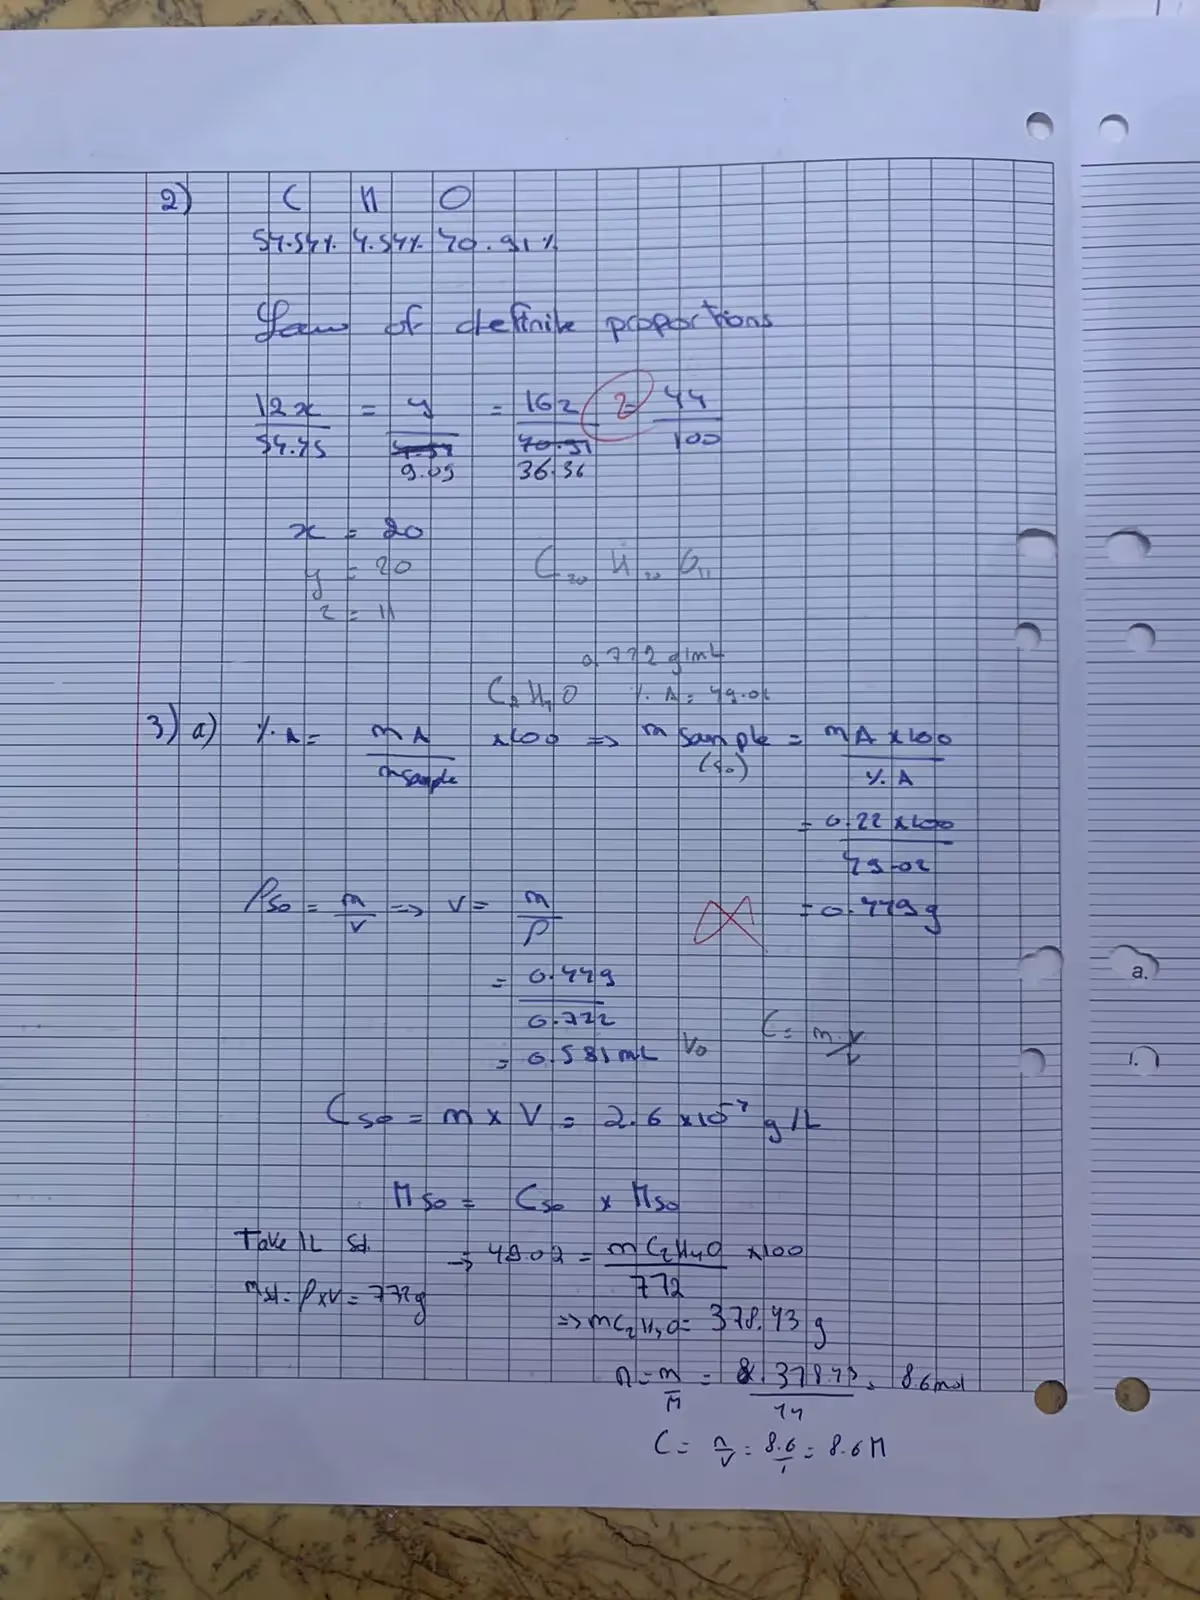 2) C H O
54.54% 4.54% 40.91%
Law of definite proportions
12x/54.45 = y/9.09 = 16z/36.36 = 44/100
x = 20
y = 20
z = 11
C20 H20 O11
0.772 g/mL
C2H4O % A = 49.02
3) a) % A = mA/msample x100 => m sample (So) = mA x 100/% A
= 0.22 x100/49.02
= 0.449 g
ρSo = m/V => V = m/ρ
= 0.449/0.772
= 0.581 mL Vo
C = m.V
CSo = m x V = 2.6 x10^-4 g/L
MSo = CSo x MSo
Take 1L Sol.
→ 49.02 = m C2H4O/772 x100
msol = ρxV = 772g
=> mC2H4O = 378.43 g
n = m/M = 378.43/44 = 8.6 mol
C = n/V = 8.6/1 = 8.6 M
a.